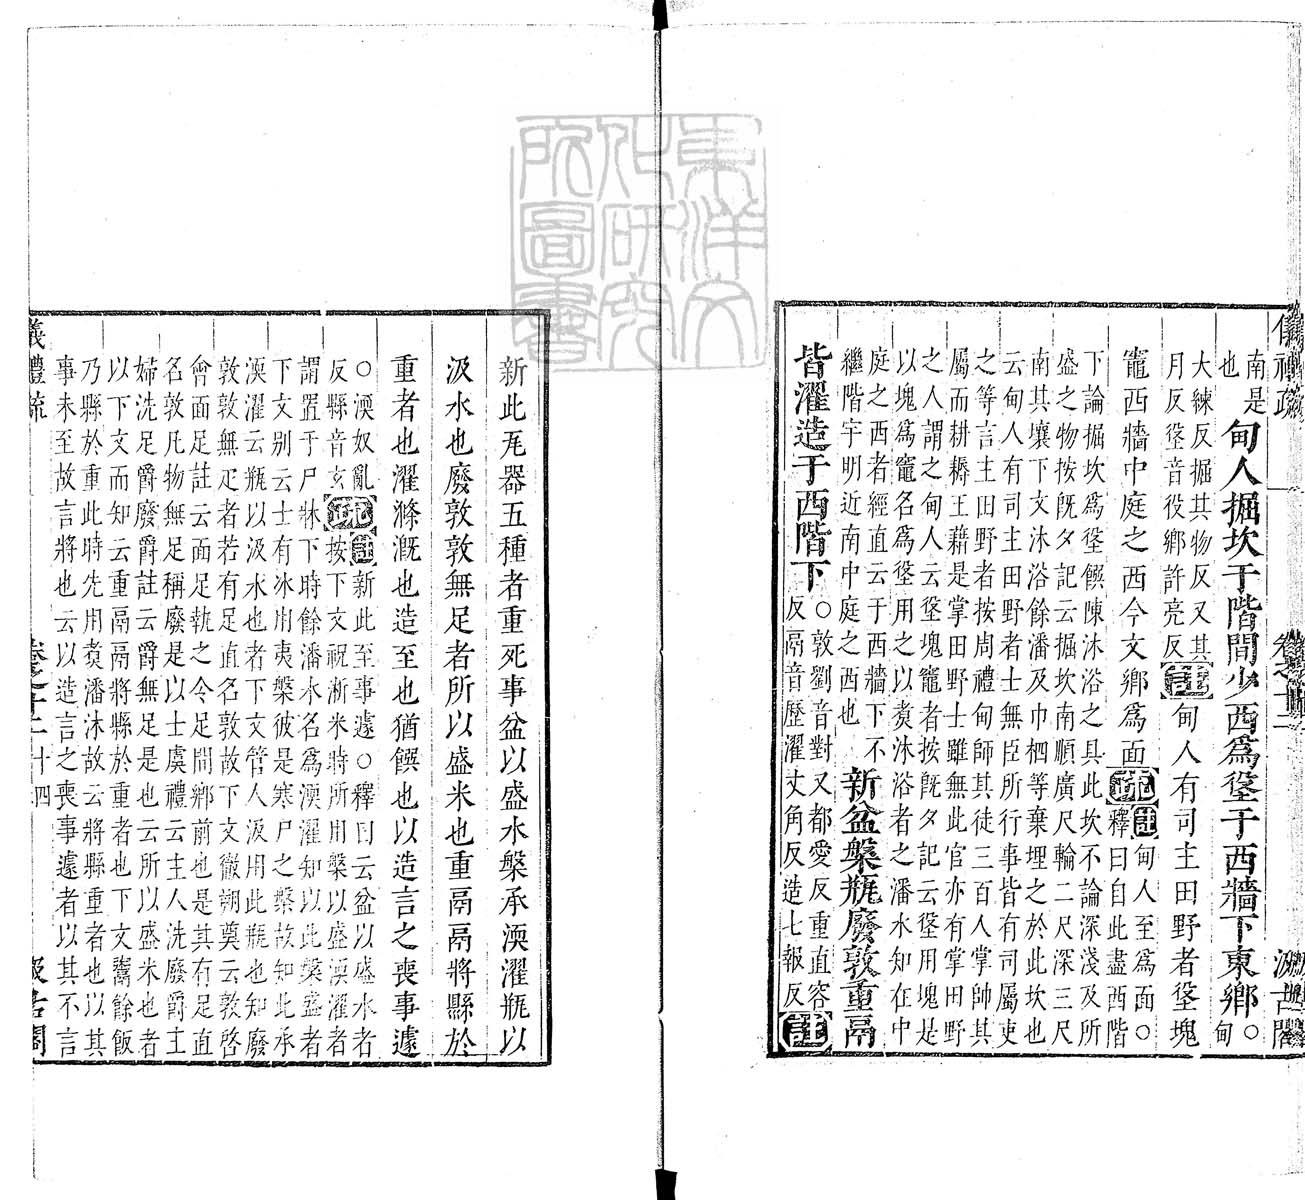 儀禮疏 卷之十二 汲古閣
南是
也
甸人掘坎于階間少西爲垼于西牆下東鄉
○
甸
大練反掘其物反又其
月反垼音役鄉許亮反
註甸人有司主田野者垼塊
竈西牆中庭之西今文鄉爲面
疏註甸人至爲面○
釋曰自此盡西階
下論掘坎爲垼饌陳沐浴之具此坎不論深淺及所
盛之物按既夕記云掘坎南順廣尺輪二尺深三尺
南其壤下文沐浴餘潘及巾柶等棄埋之於此坎也
云甸人有司主田野者士無臣所行事皆有司屬吏
之等言主田野者按周禮甸師其徒三百人掌帥其
屬而耕耨王藉是掌田野士雖無此官亦有掌田野
之人謂之甸人云垼塊竈者按既夕記云垼用塊是
以塊爲竈名爲垼用之以煑沐浴者之潘水知在中
庭之西者經直云于西牆下不
繼階宇明近南中庭之西也
新盆槃瓶廢敦重鬲
皆濯造于西階下
○敦劉音對又都愛反重直容
反鬲音歷濯丈角反造七報反
註
新此瓦器五種者重死事盆以盛水槃承渜濯瓶以
汲水也廢敦敦無足者所以盛米也重鬲鬲將縣於
重者也濯滌漑也造至也猶饌也以造言之喪事遽
○渜奴亂
反縣音玄
疏註新此至事遽○釋曰云盆以盛水者
按下文祝淅米時所用槃以盛渜濯者
謂置于尸牀下時餘潘水名爲渜濯知以此槃盛者
下文別云士有冰用夷槃彼是寒尸之槃故知此承
渜濯云瓶以汲水也者下文管人汲用此瓶也知廢
敦敦無足者若有足直名敦故下文徹朔奠云敦啓
會面足註云面足執之令足間鄉前也是其有足直
名敦凡物無足稱廢是以士虞禮云主人洗廢爵主
婦洗足爵廢爵註云爵無足是也云所以盛米也者
以下文而知云重鬲鬲將縣於重者也下文鬻餘飯
乃縣於重此時先用煑潘沐故云將縣重者也以其
事未至故言將也云以造言之喪事遽者以其不言
儀禮疏 卷之十二 十四 汲古閣
東洋文化研究所圖書